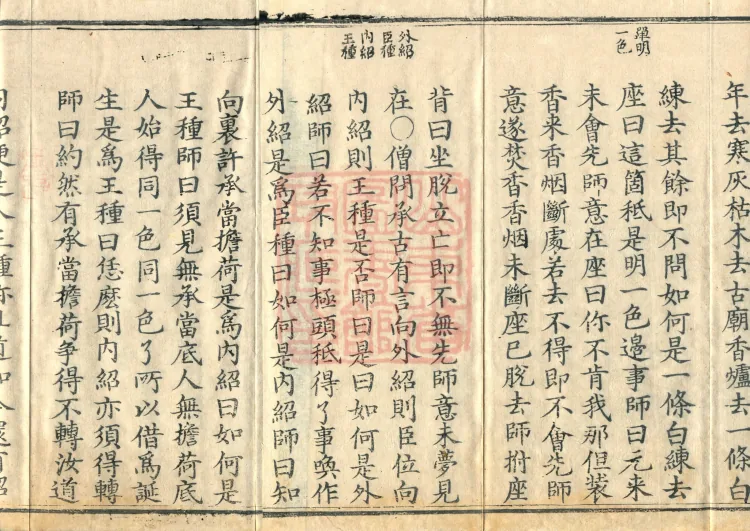 單明
一色
外紹
臣種
內紹
王種
年去寒灰枯木去古廟香爐去一條白
練去其餘即不問如何是一條白練去
座曰這箇秖是明一色邉事師曰元来
未會先師意在座曰你不肯我那但裝
香来香烟斷處若去不得即不會先師
意遂焚香香烟未斷座已脫去師拊座
背曰坐脫立亡即不無先師意未夢見
在〇僧問承古有言向外紹則臣位向
內紹則王種是否師曰是曰如何是外
紹師曰若不知事極頭秖得了事喚作
外紹是爲臣種曰如何是內紹師曰知
向裏許承當擔荷是爲內紹曰如何是
王種師曰須見無承當底人無擔荷底
人始得同一色同一色了所以借爲誕
生是爲王種曰恁麽則內紹亦須得轉
師曰約然有承當擔荷争得不轉汝道